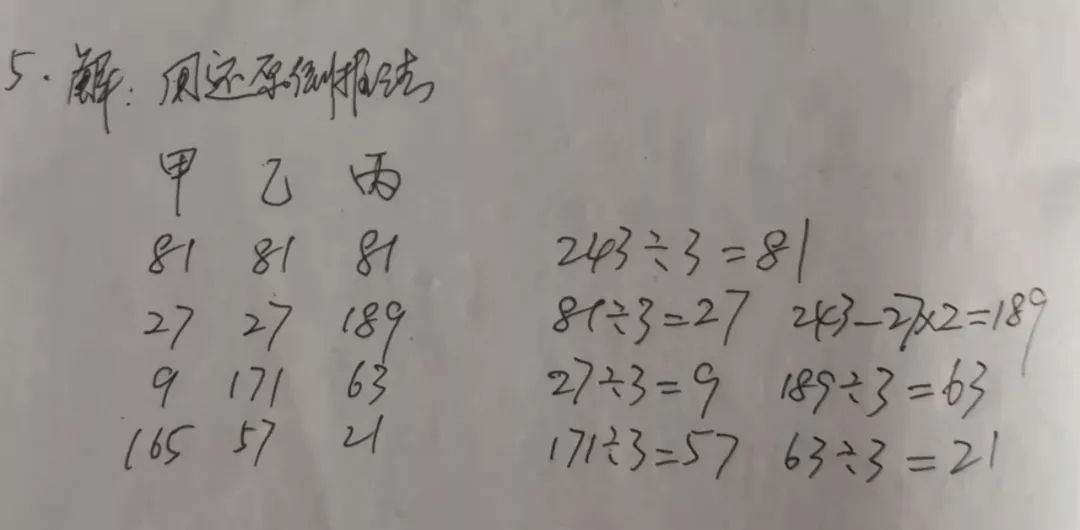 5. 解：用还原倒推法
甲 乙 丙
81 81 81 243÷3=81
27 27 189 81÷3=27 243-27×2=189
9 171 63 27÷3=9 189÷3=63
165 57 21 171÷3=57 63÷3=21